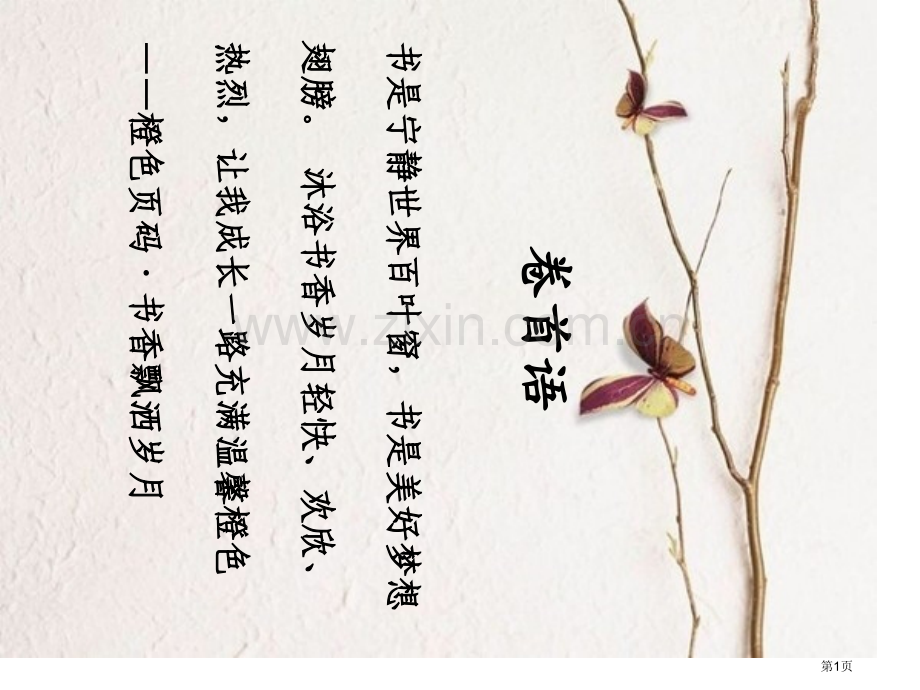 卷首语
书是宁静世界百叶窗，书是美好梦想
翅膀。 沐浴书香岁月轻快、欢欣、
热烈，让我成长一路充满温馨橙色
——橙色页码·书香飘洒岁月
www.zixin.com.cn
第1页